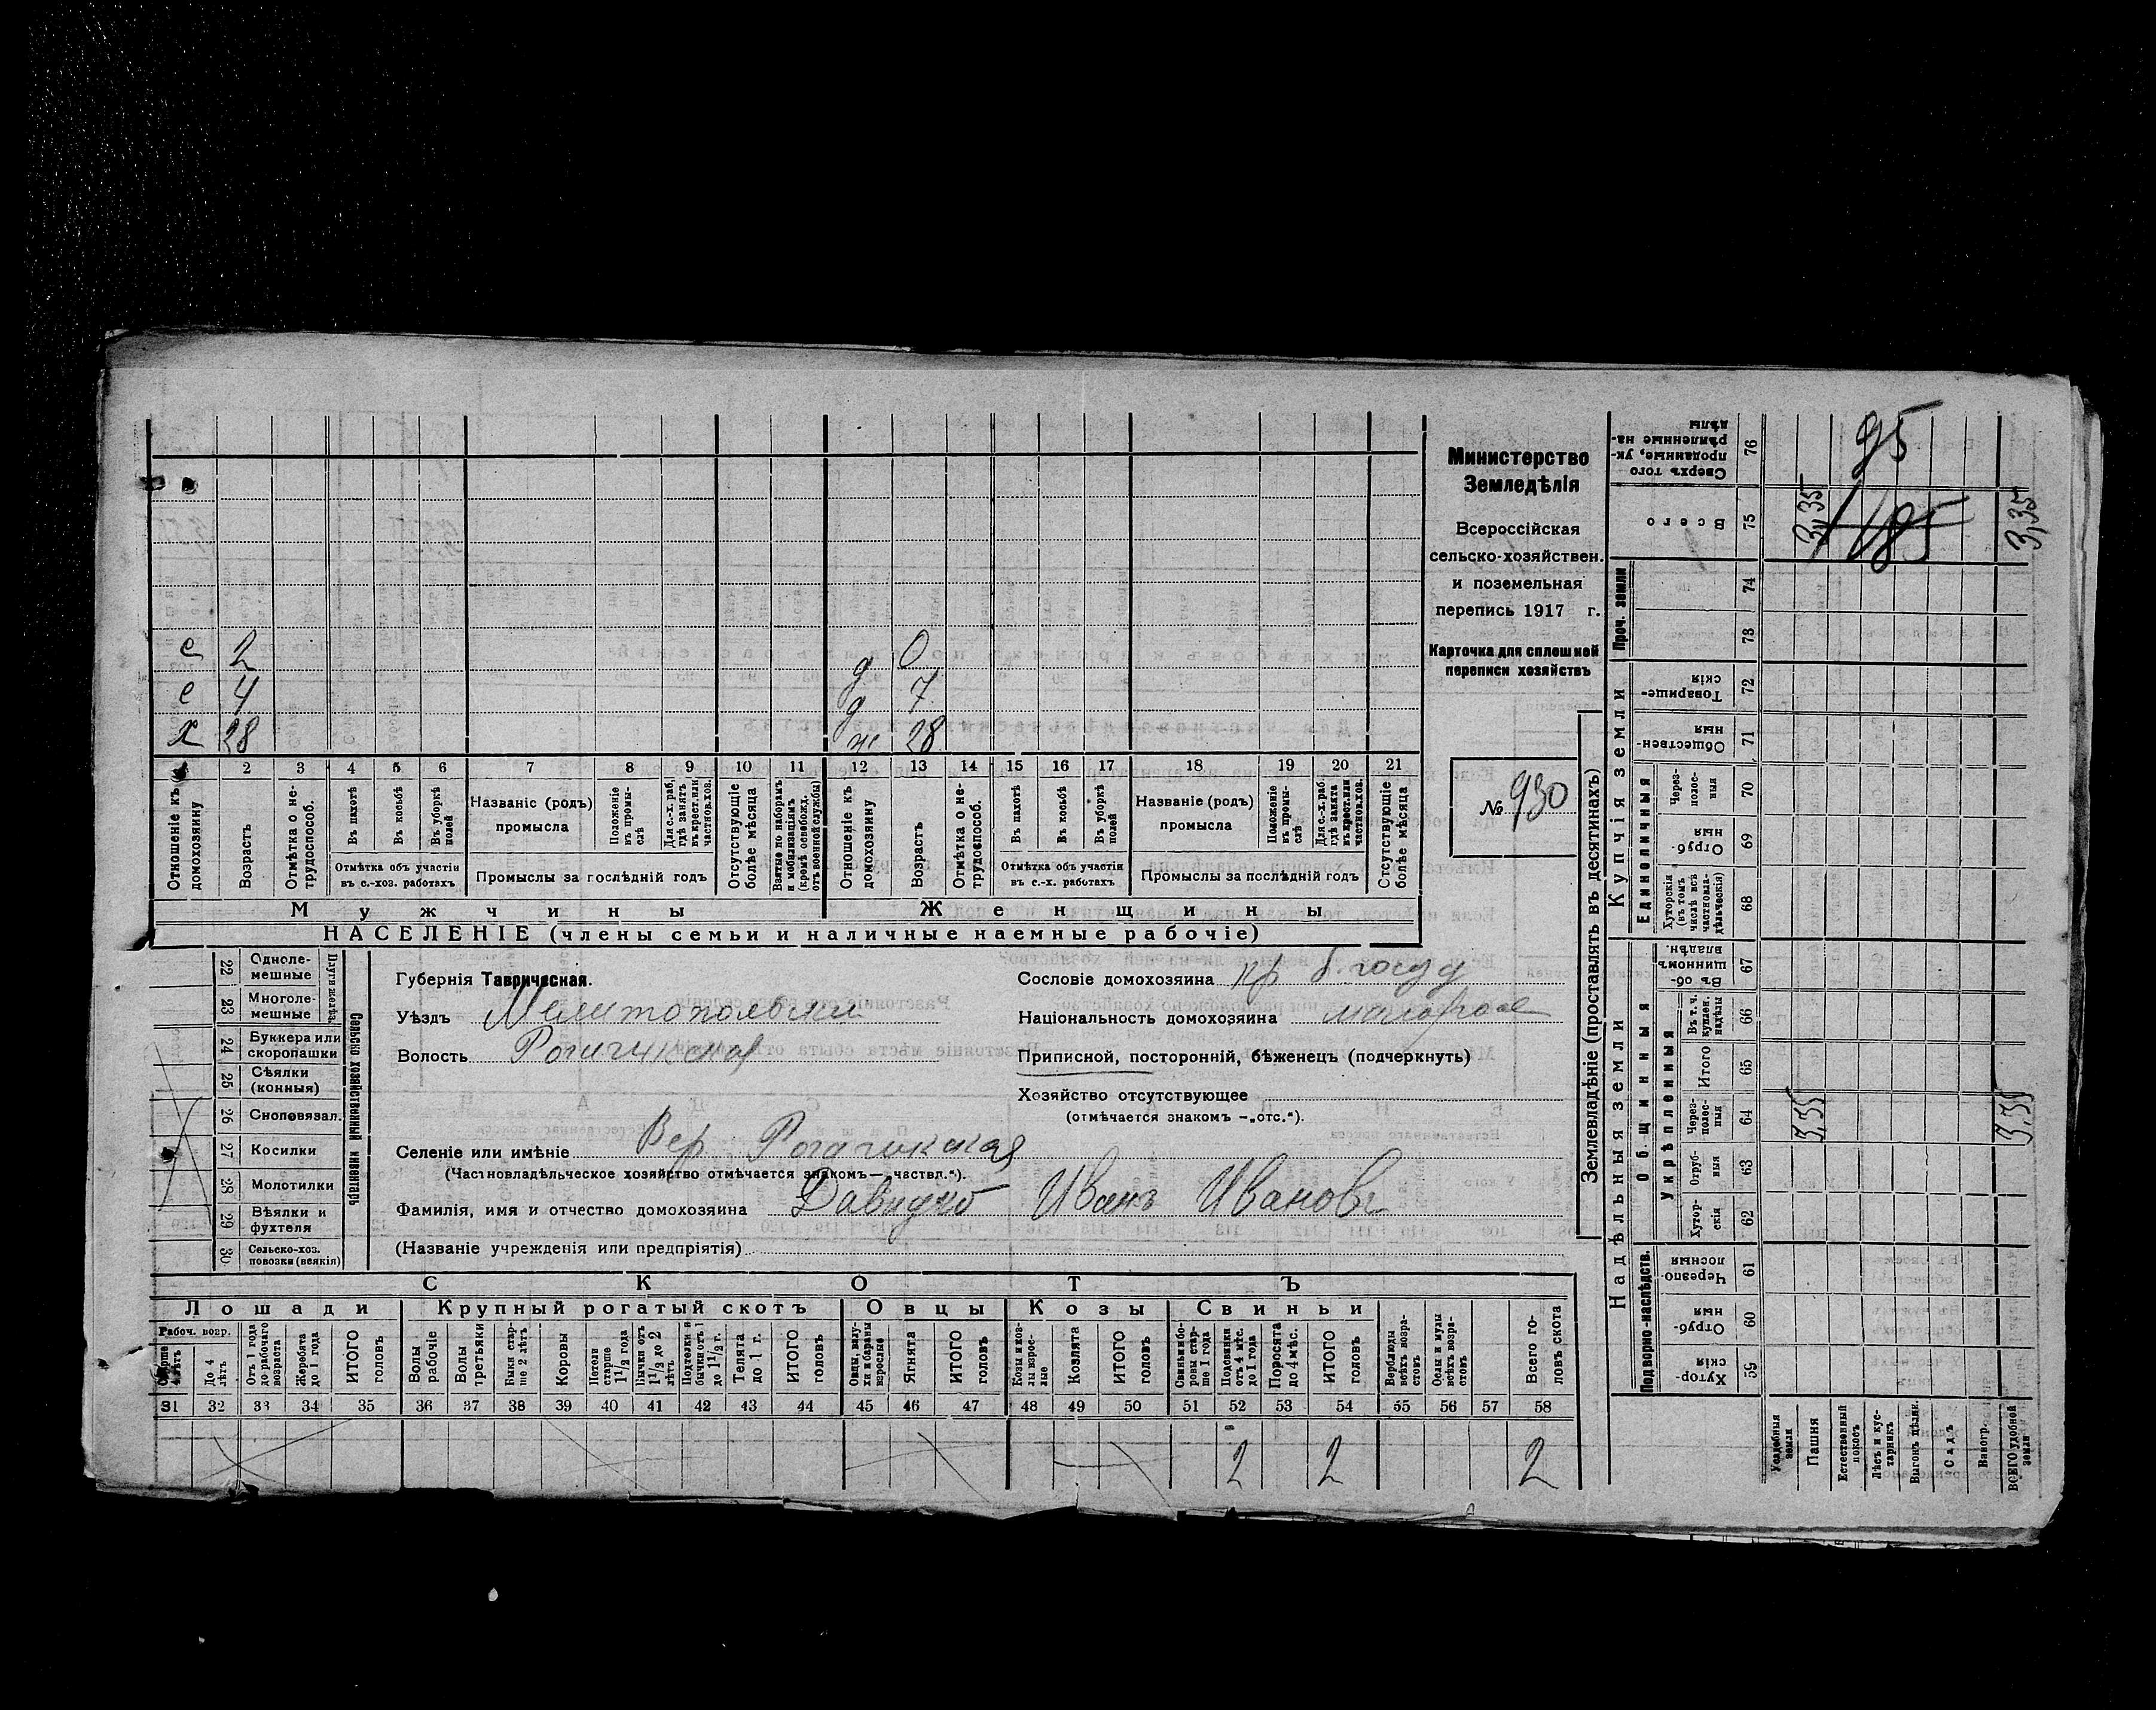 Министерство
Земледѣлія
Всероссійская
сельско-хозяйствен.
и поземельная
перепись 1917 г.
Карточка для сплошной
переписи хозяйствъ
№ 930
с 2
с 4
х 28
д 0
д 7
ж 28
1 2 3 4 5 6 7 8 9 10 11 12 13 14 15 16 17 18 19 20 21
Отношеніе къ домохозяину
Возрастъ
Отмѣтка о нетрудоспособ.
Въ пахотѣ
Въ косьбѣ
Въ уборкѣ полей
Отмѣтка объ участіи въ с.-хоз. работахъ
Названіе (родъ) промысла
Положеніе въ промыслѣ
Для с.-х. раб., гдѣ занятъ въ крест. или частнов. хоз.
Промыслы за послѣдній годъ
Отсутствующіе болѣе мѣсяца
Взятые по наборамъ и мобилизаціямъ (кромѣ освобожд. отъ военной службы)
Отношеніе къ домохозяину
Возрастъ
Отмѣтка о нетрудоспособ.
Въ пахотѣ
Въ косьбѣ
Въ уборкѣ полей
Отмѣтка объ участіи въ с.-х. работахъ
Названіе (родъ) промысла
Положеніе въ промыслѣ
Для с.-х. раб. гдѣ занята въ крест. или частнов. хоз.
Промыслы за послѣдній годъ
Отсутствующіе болѣе мѣсяца
Мужчины
Женщины
НАСЕЛЕНІЕ (члены семьи и наличные наемные рабочіе)
Сельско хозяйственный инвентарь
22 Однолемешные
23 Многолемешные
24 Буккера или скоропашки
25 Сѣялки (конныя)
26 Сноповязал.
27 Косилки
28 Молотилки
29 Вѣялки и фухтеля
30 Сельско-хоз. повозки (всякія)
Губернія Таврическая.
Уѣздъ Мелитопольскій
Волость Рогачикская
Селеніе или имѣніе Вер. Рогачикская
(Частновладѣльческое хозяйство отмѣчается знакомъ — „частвл.“).
Фамилія, имя и отчество домохозяина Давидко Иванъ Иванов
(Названіе учрежденія или предпріятія)
Сословіе домохозяина кр б. госуд
Національность домохозяина малорос
Приписной, посторонній, бѣженецъ (подчеркнуть)
Хозяйство отсутствующее
(отмѣчается знакомъ — „отс.“).
СКОТЪ
Лошади
Крупный рогатый скотъ
Овцы
Козы
Свиньи
Рабоч. возр.
Старше 4 лѣтъ
До 4 лѣтъ
Отъ 1 года до рабочаго возраста
Жеребята до 1 года
ИТОГО головъ
Волы рабочіе
Волы третьяки
Быки старше 2 лѣтъ
Коровы
Нетели старше 1 1/2 года
Бычки отъ 1 1/2 до 2 лѣтъ
Подтелки и бычки отъ 1 до 1 1/2 г.
Телята до 1 г.
ИТОГО головъ
Овцы, валухи и бараны взрослые
Ягнята
ИТОГО головъ
Козы и козлы взрослые
Козлята
ИТОГО головъ
Свиньи и боровы старше 1 года
Подсвинки отъ 4 мѣс. до 1 года
Поросята до 4 мѣс.
ИТОГО головъ
Верблюды всѣхъ возрастовъ
Ослы и мулы всѣхъ возрастовъ
Всего головъ скота
31 32 33 34 35 36 37 38 39 40 41 42 43 44 45 46 47 48 49 50 51 52 53 54 55 56 57 58
2 2 2
Землевладѣніе (проставлять въ десятинахъ)
Надѣльныя земли
Купчія земли
Проч. земли
Подворно-наслѣдств.
Общинныя
Укрѣпленныя
Единоличныя
Сверхъ того проданные, укрѣпленные надѣлы 76 95
Всего 75 3,35 185 3,35
74
73
Товарищескія 72
Общественныя 71
Черезполосныя 70
Отрубныя 69
Хуторскія (въ томъ числѣ всѣ частновладѣльческія) 68
Въ общинномъ владѣн. 67
Въ т. ч. куплен. надѣлы 66
Итого 65
Черезполосныя 64 3,35 3,35
Отрубныя 63
Хуторскія 62
Черезполосныя 61
Отрубныя 60
Хуторскія 59
Усадебныя земли
Пашня
Естественный покосъ
Лѣсъ и кустарникъ
Выгонъ цѣлик.
Садъ
Виногр.
ВСЕГО удобной земли